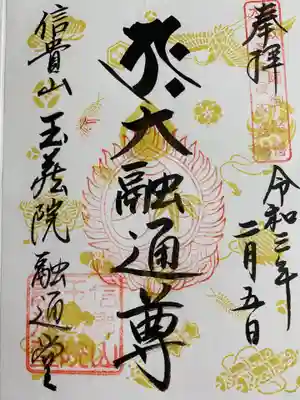 奉拝
令和三年
二月五日
大融通尊
信貴山
玉蔵院融通堂